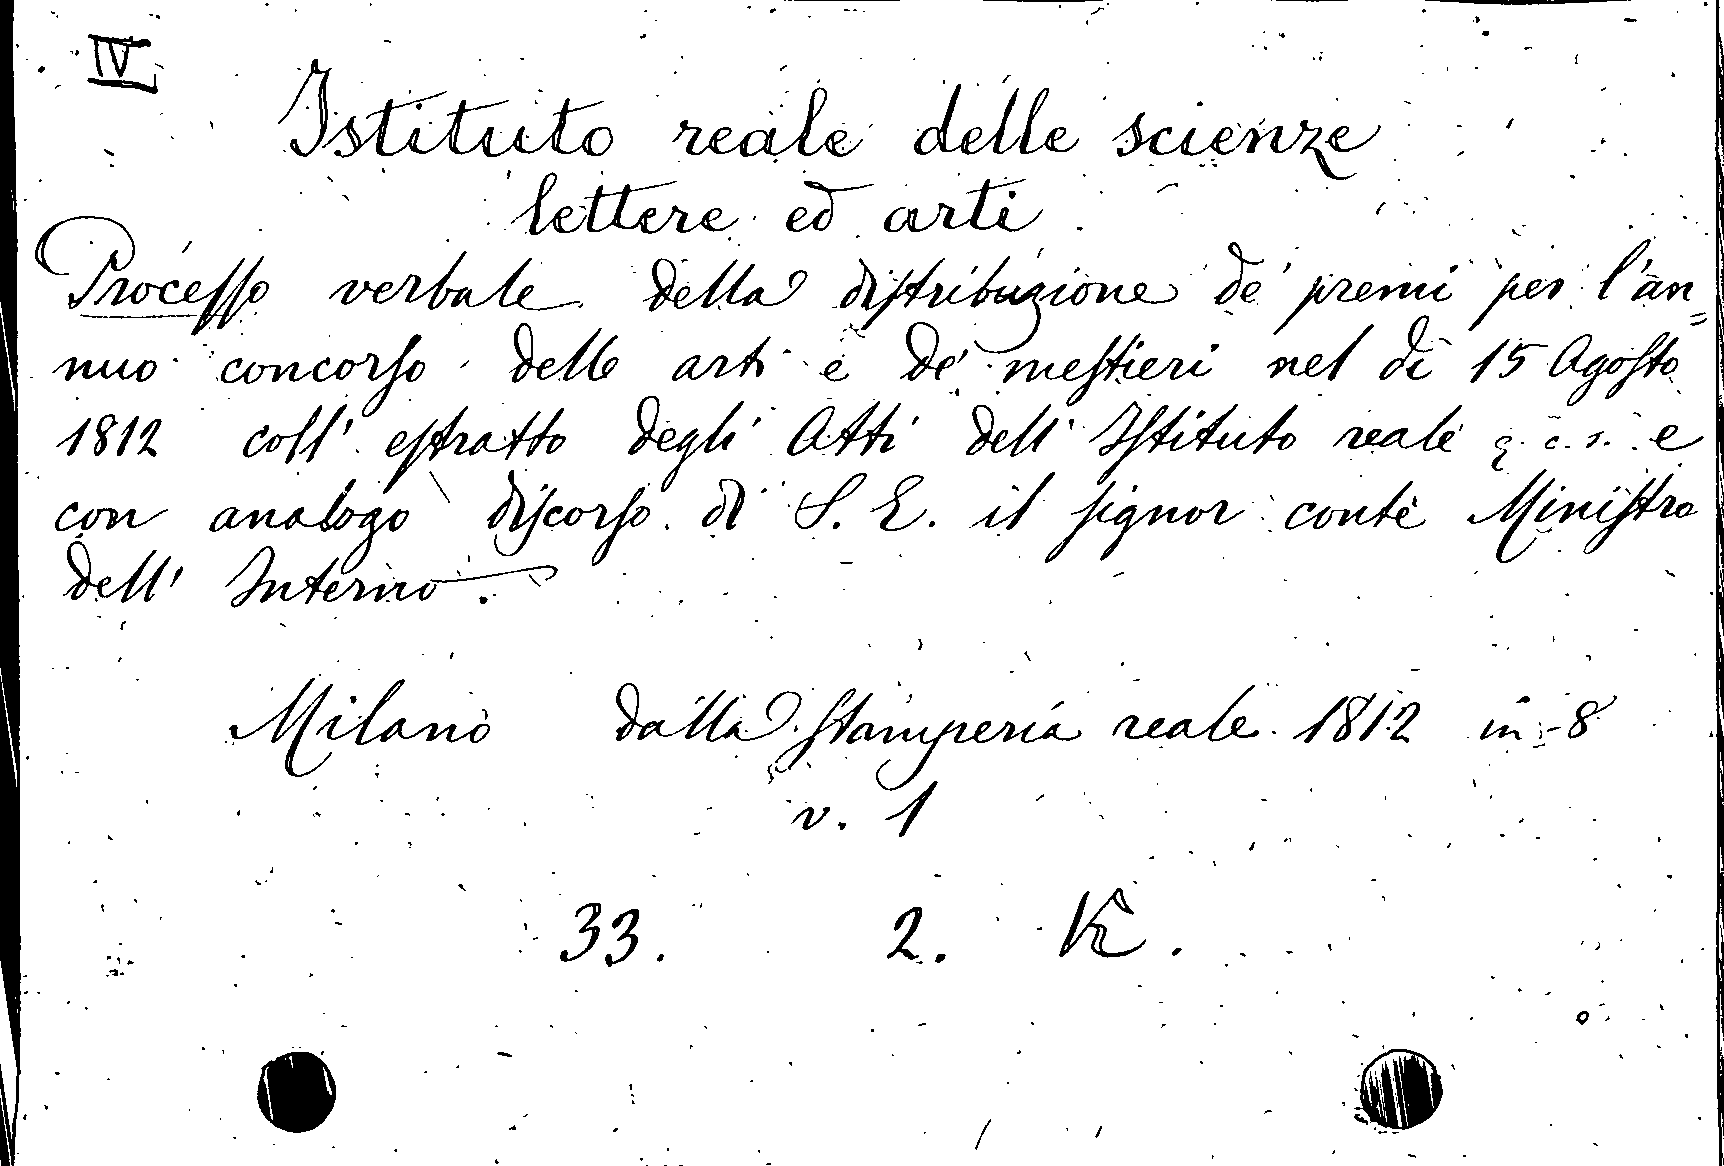 IV
Istituto reale delle scienze
lettere ed arti
Processo verbale della distribuzione de' premi per l'an=
nuo concorso delle arti e de' mestieri nel dì 15 Agosto
1812 coll' estratto degli Atti dell' Istituto reale q. c. s. e
con analogo discorso di S. E. il signor conte Ministro
dell' Interno.
Milano dalla stamperia reale 1812 in-8
v. 1
33. 2. K.